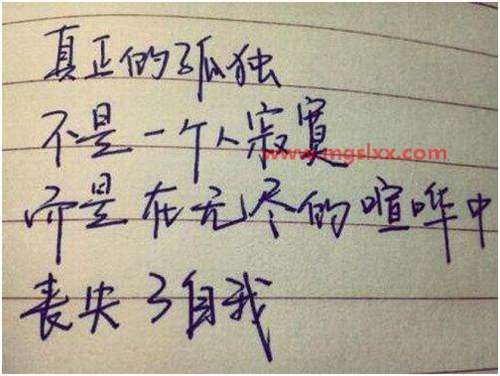 真正的孤独
不是一个人寂寞
www.mgslxx.com
而是在无尽的喧哗中
丧失了自我